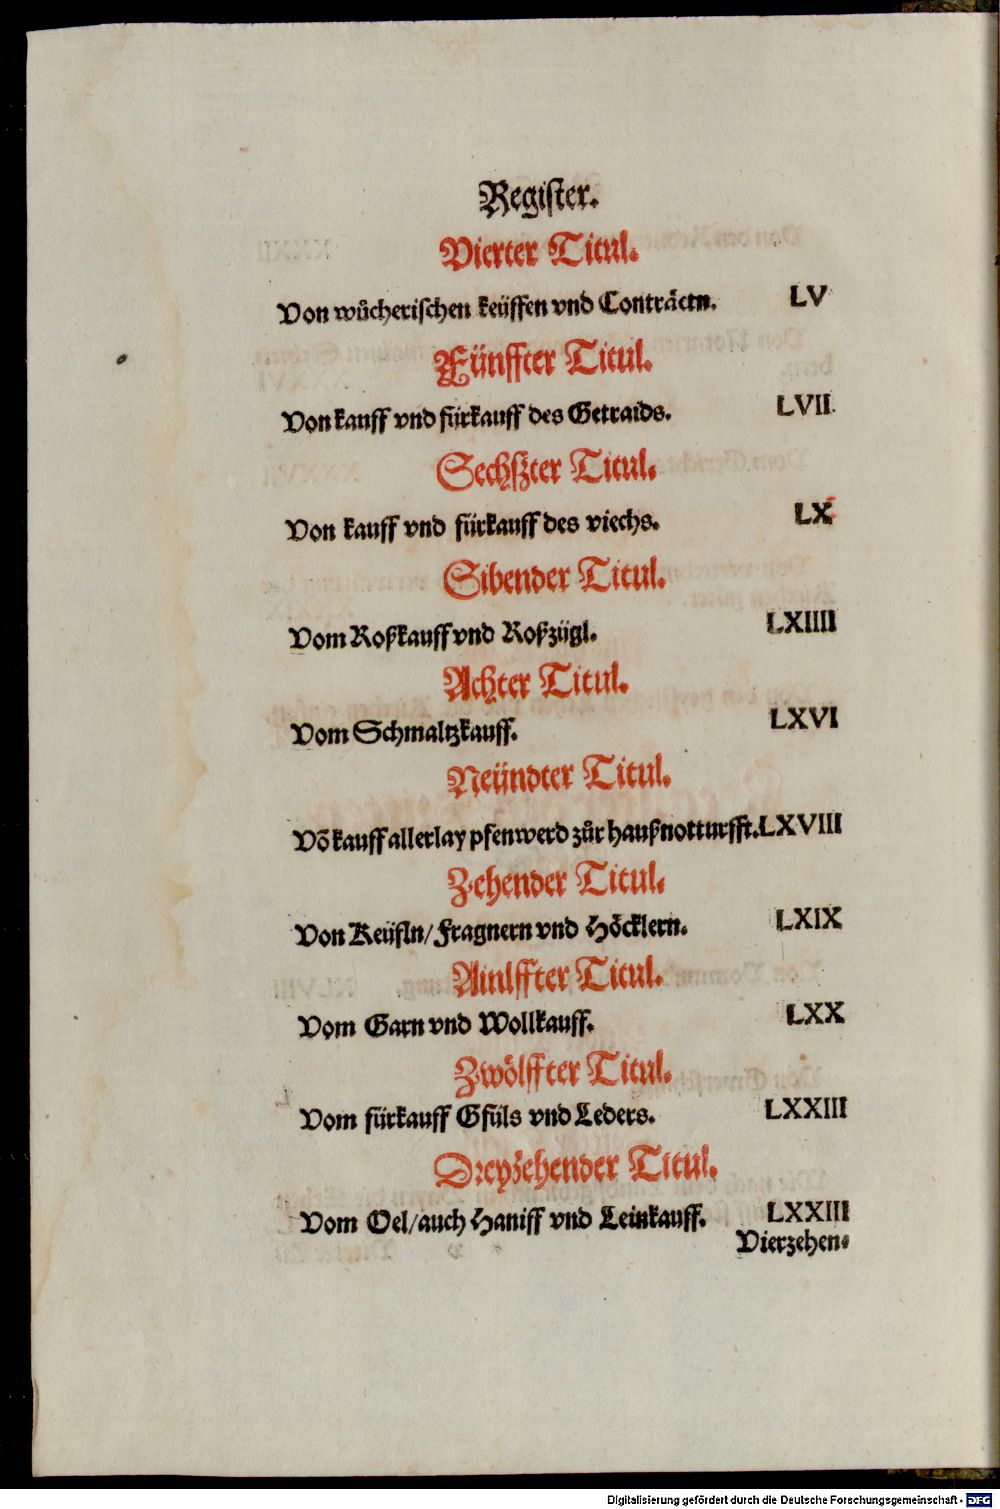 Register.
Vierter Titul.
Von wůcherischen keüffen vnd Conträctn. LV
Fünffter Titul.
Von kauff vnd fürkauff des Getraids. LVII.
Sechßter Titul.
Von kauff vnd fürkauff des viechs. LX
Sibender Titul.
Vom Roßkauff vnd Roßzügl. LXIIII
Achter Titul.
Vom Schmaltzkauff. LXVI
Neündter Titul.
Võ kauff allerlay pfenwerd zůr haußnotturfft. LXVIII
Zehender Titul.
Von Keüfln/ Fragnern vnd Höcklern. LXIX
Ainlffter Titul.
Vom Garn vnd Wollkauff. LXX
Zwölffter Titul.
Vom fürkauff Gfüls vnd Leders. LXXIII
Dreyzehender Titul.
Vom Oel/ auch Haniff vnd Leinkauff. LXXIII
Vierzehen⸗
Digitalisierung gefördert durch die Deutsche Forschungsgemeinschaft - DFG